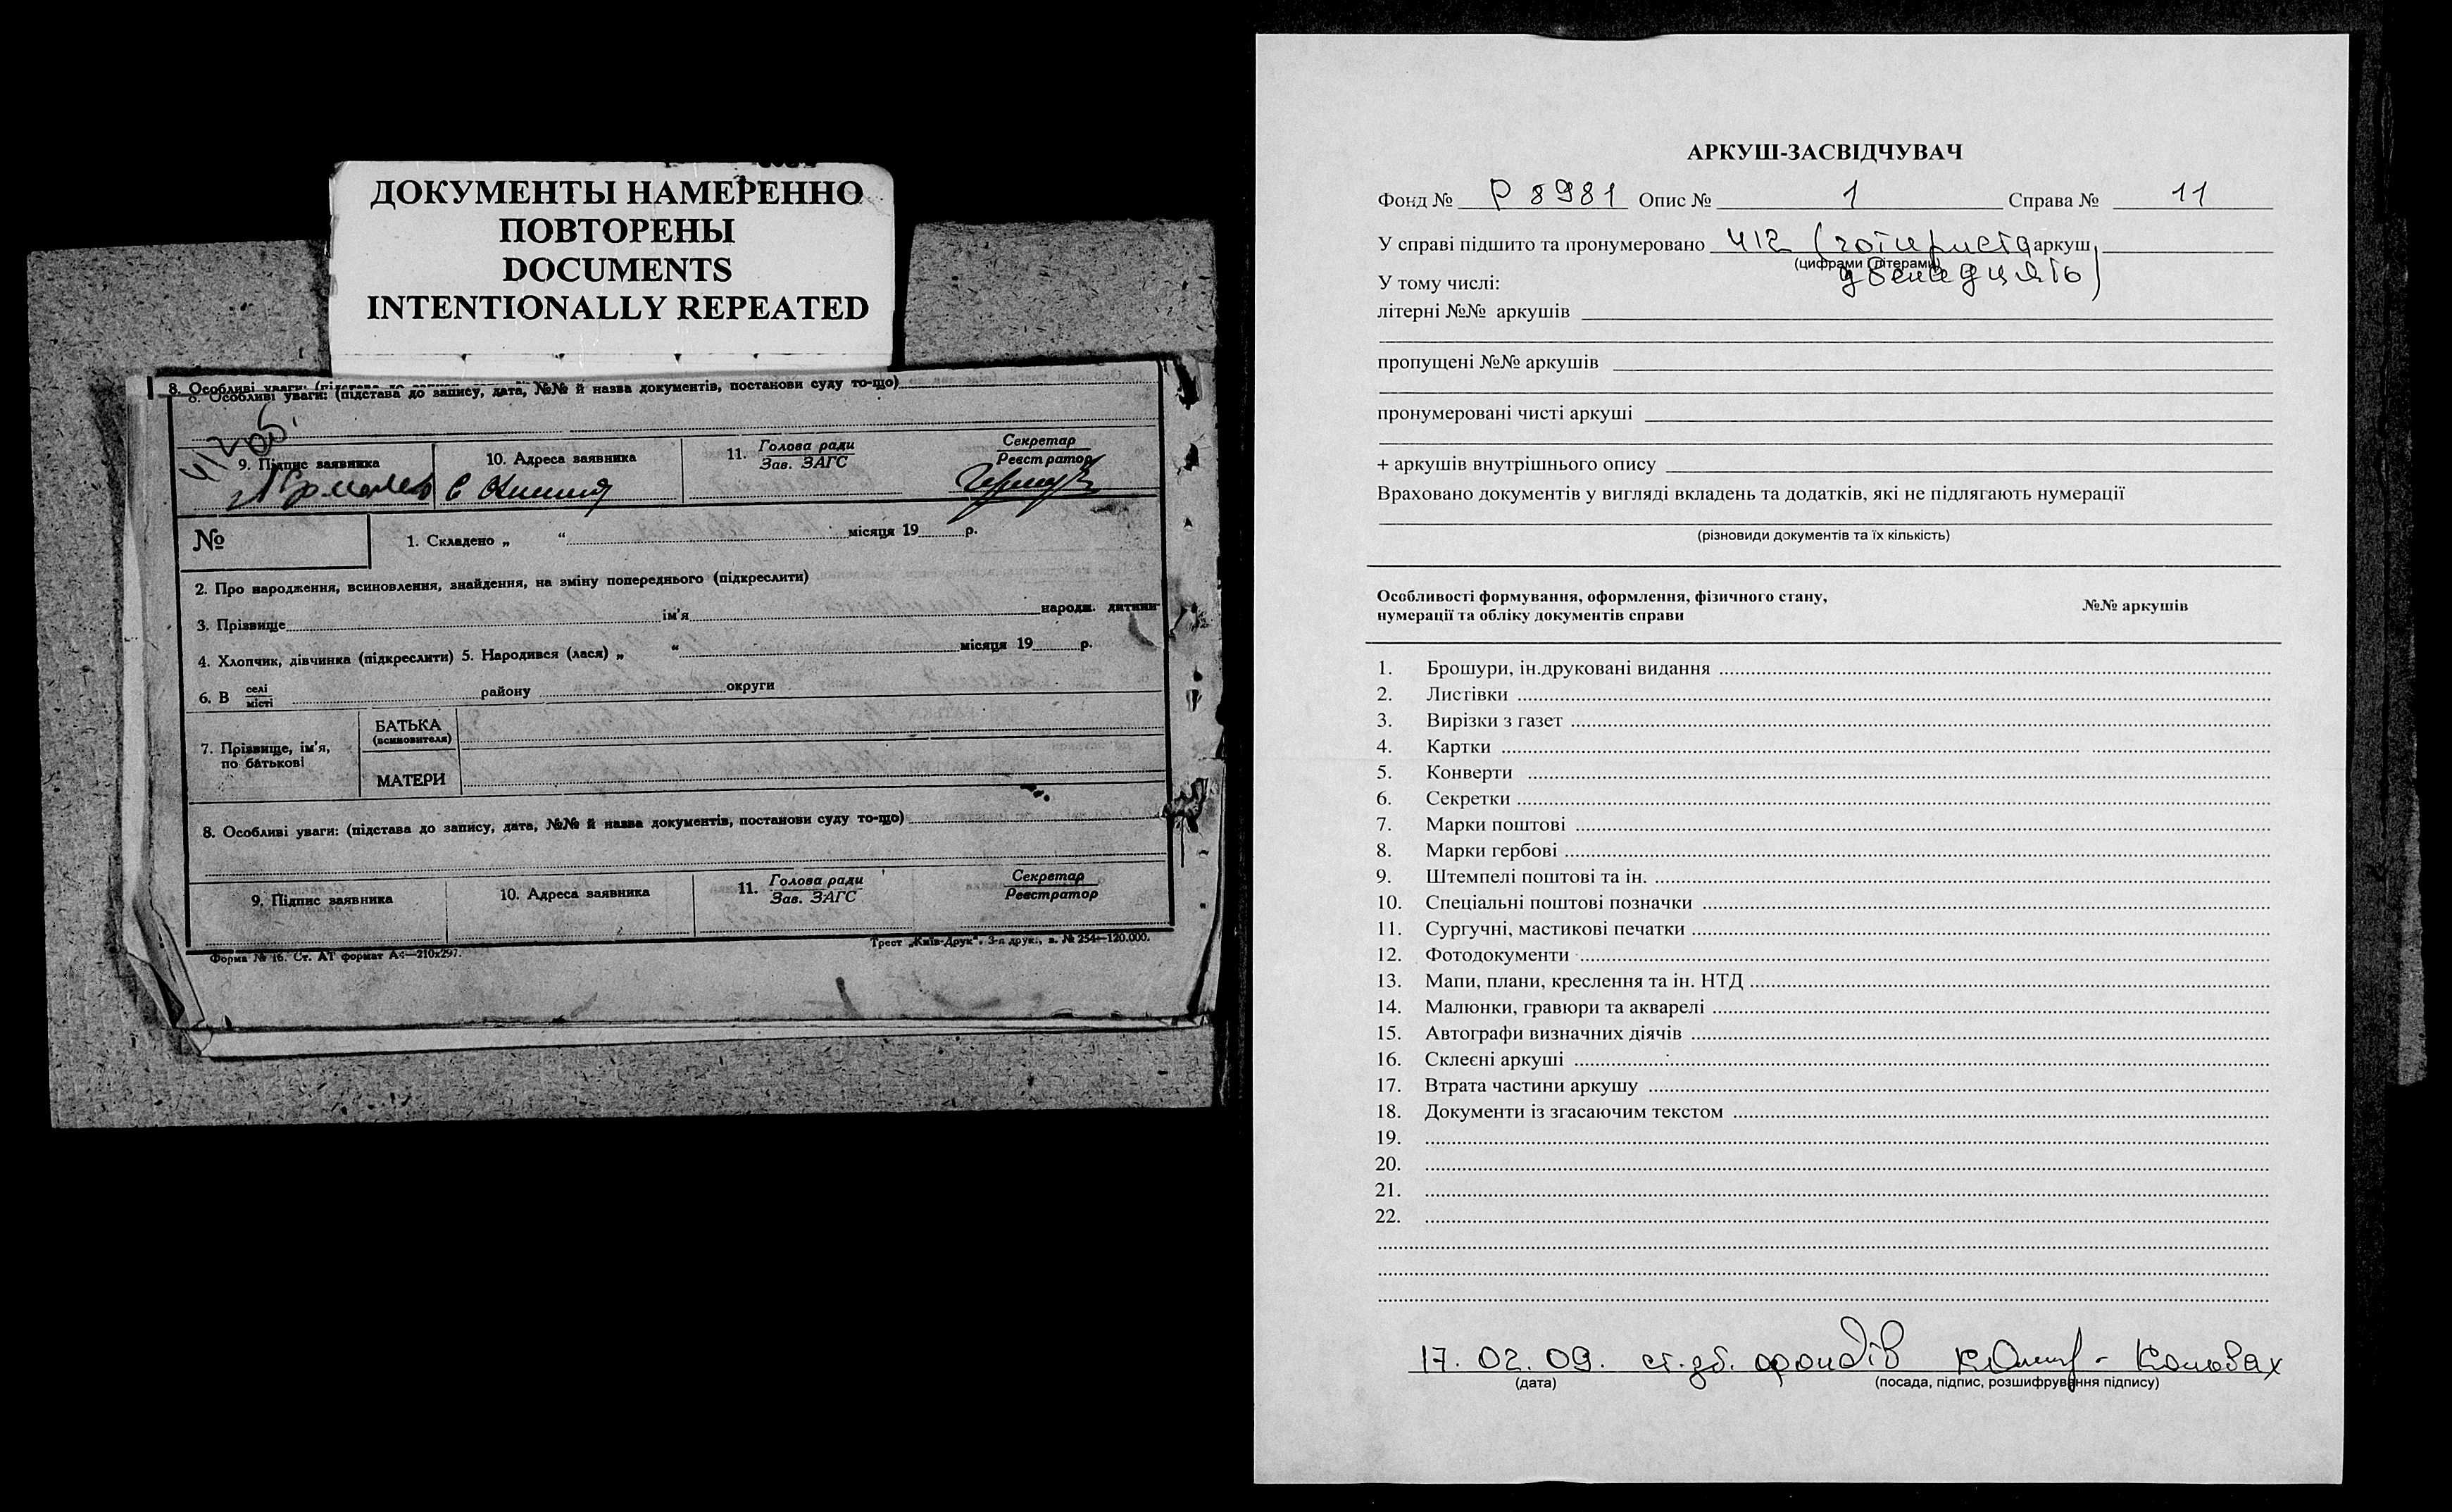 ДОКУМЕНТЫ НАМЕРЕННО
ПОВТОРЕНЫ
DOCUMENTS
INTENTIONALLY REPEATED
8. Особливі уваги: (підстава до запису, дата, №№ й назва документів, постанови суду то-що)
412 об.
9. Підпис заявника
10. Адреса заявника
11. Голова ради
Зав. ЗАГС
Секретар
Реєстратор
№
1. Складено „ “ місяця 19 р.
2. Про народження, всиновлення, знайдення, на зміну попереднього (підкреслити)
3. Прізвище ім'я народж. дитини
4. Хлопчик, дівчинка (підкреслити) 5. Народився (лася) „ “ місяця 19 р.
6. В селі
місті
району округи
7. Прізвище, ім'я,
по батькові
БАТЬКА
(всиновителя)
МАТЕРИ
8. Особливі уваги: (підстава до запису, дата, №№ й назва документів, постанови суду то-що)
9. Підпис заявника
10. Адреса заявника
11. Голова ради
Зав. ЗАГС
Секретар
Реєстратор
Форма № 16. Ст. АТ формат А4—210х297.
Трест „Київ-Друк“. 3-я друк., з. № 254—120.000.
АРКУШ-ЗАСВІДЧУВАЧ
Фонд № Р 8981 Опис № 1 Справа № 11
У справі підшито та пронумеровано 412 (чотириста аркуш
(цифрами і літерами)
дванадцять)
У тому числі:
літерні №№ аркушів
пропущені №№ аркушів
пронумеровані чисті аркуші
+ аркушів внутрішнього опису
Враховано документів у вигляді вкладень та додатків, які не підлягають нумерації
(різновиди документів та їх кількість)
Особливості формування, оформлення, фізичного стану,
нумерації та обліку документів справи
№№ аркушів
1. Брошури, ін.друковані видання
2. Листівки
3. Вирізки з газет
4. Картки
5. Конверти
6. Секретки
7. Марки поштові
8. Марки гербові
9. Штемпелі поштові та ін.
10. Спеціальні поштові позначки
11. Сургучні, мастикові печатки
12. Фотодокументи
13. Мапи, плани, креслення та ін. НТД
14. Малюнки, гравюри та акварелі
15. Автографи визначних діячів
16. Склеєні аркуші
17. Втрата частини аркушу
18. Документи із згасаючим текстом
19.
20.
21.
22.
17. 02. 09. ст. зб. фондів
(дата)
(посада, підпис, розшифрування підпису)